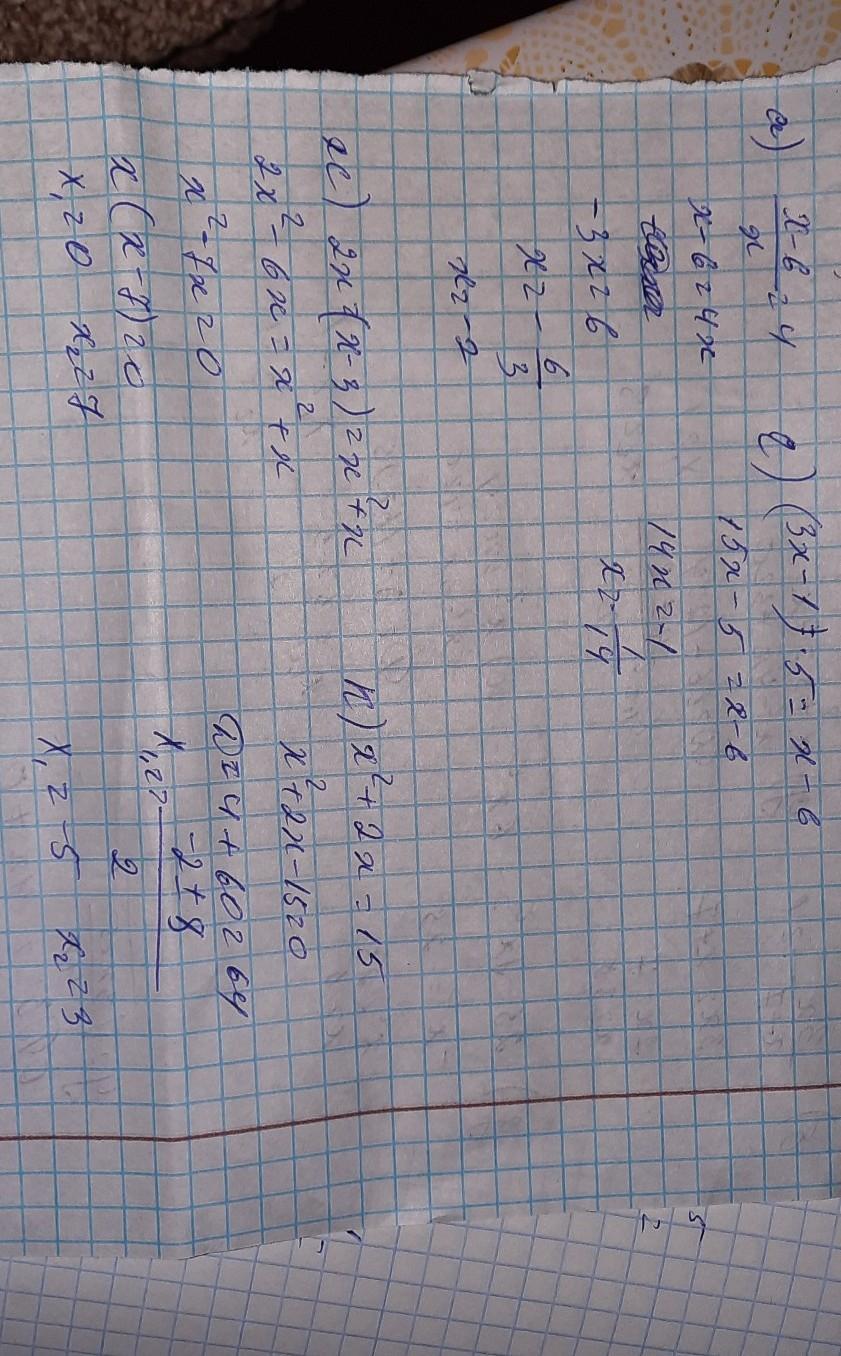 а) x-6/x = 4
x-6=4x
-3x=6
x=-6/3
x=-2
е) (3x-1)·5=x-6
15x-5=x-6
14x=-1
x=-1/14
ж) 2x(x-3)=x²+x
2x²-6x=x²+x
x²-7x=0
x(x-7)=0
x₁=0 x₂=7
к) x²+2x=15
x²+2x-15=0
D=4+60=64
x₁,₂=-2±8/2
x₁=-5 x₂=3